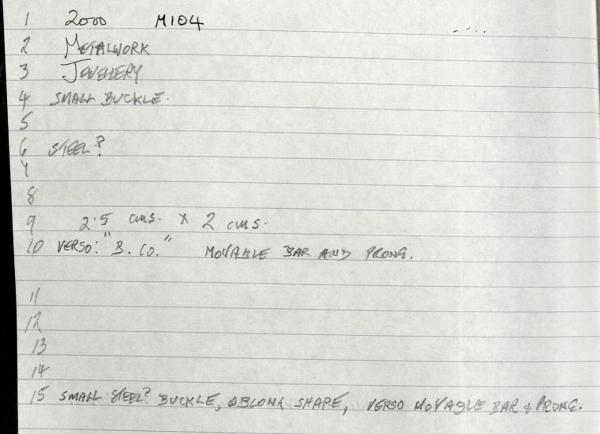 1 2000 M104
2 METALWORK
3 JEWELLERY
4 SMALL BUCKLE.
5
6 STEEL?
7
8
9 2.5 cms. x 2 cms.
10 VERSO: "B. CO." MOVABLE BAR AND PRONG.
11
12
13
14
15 SMALL STEEL? BUCKLE, OBLONG SHAPE, VERSO MOVABLE BAR & PRONG.